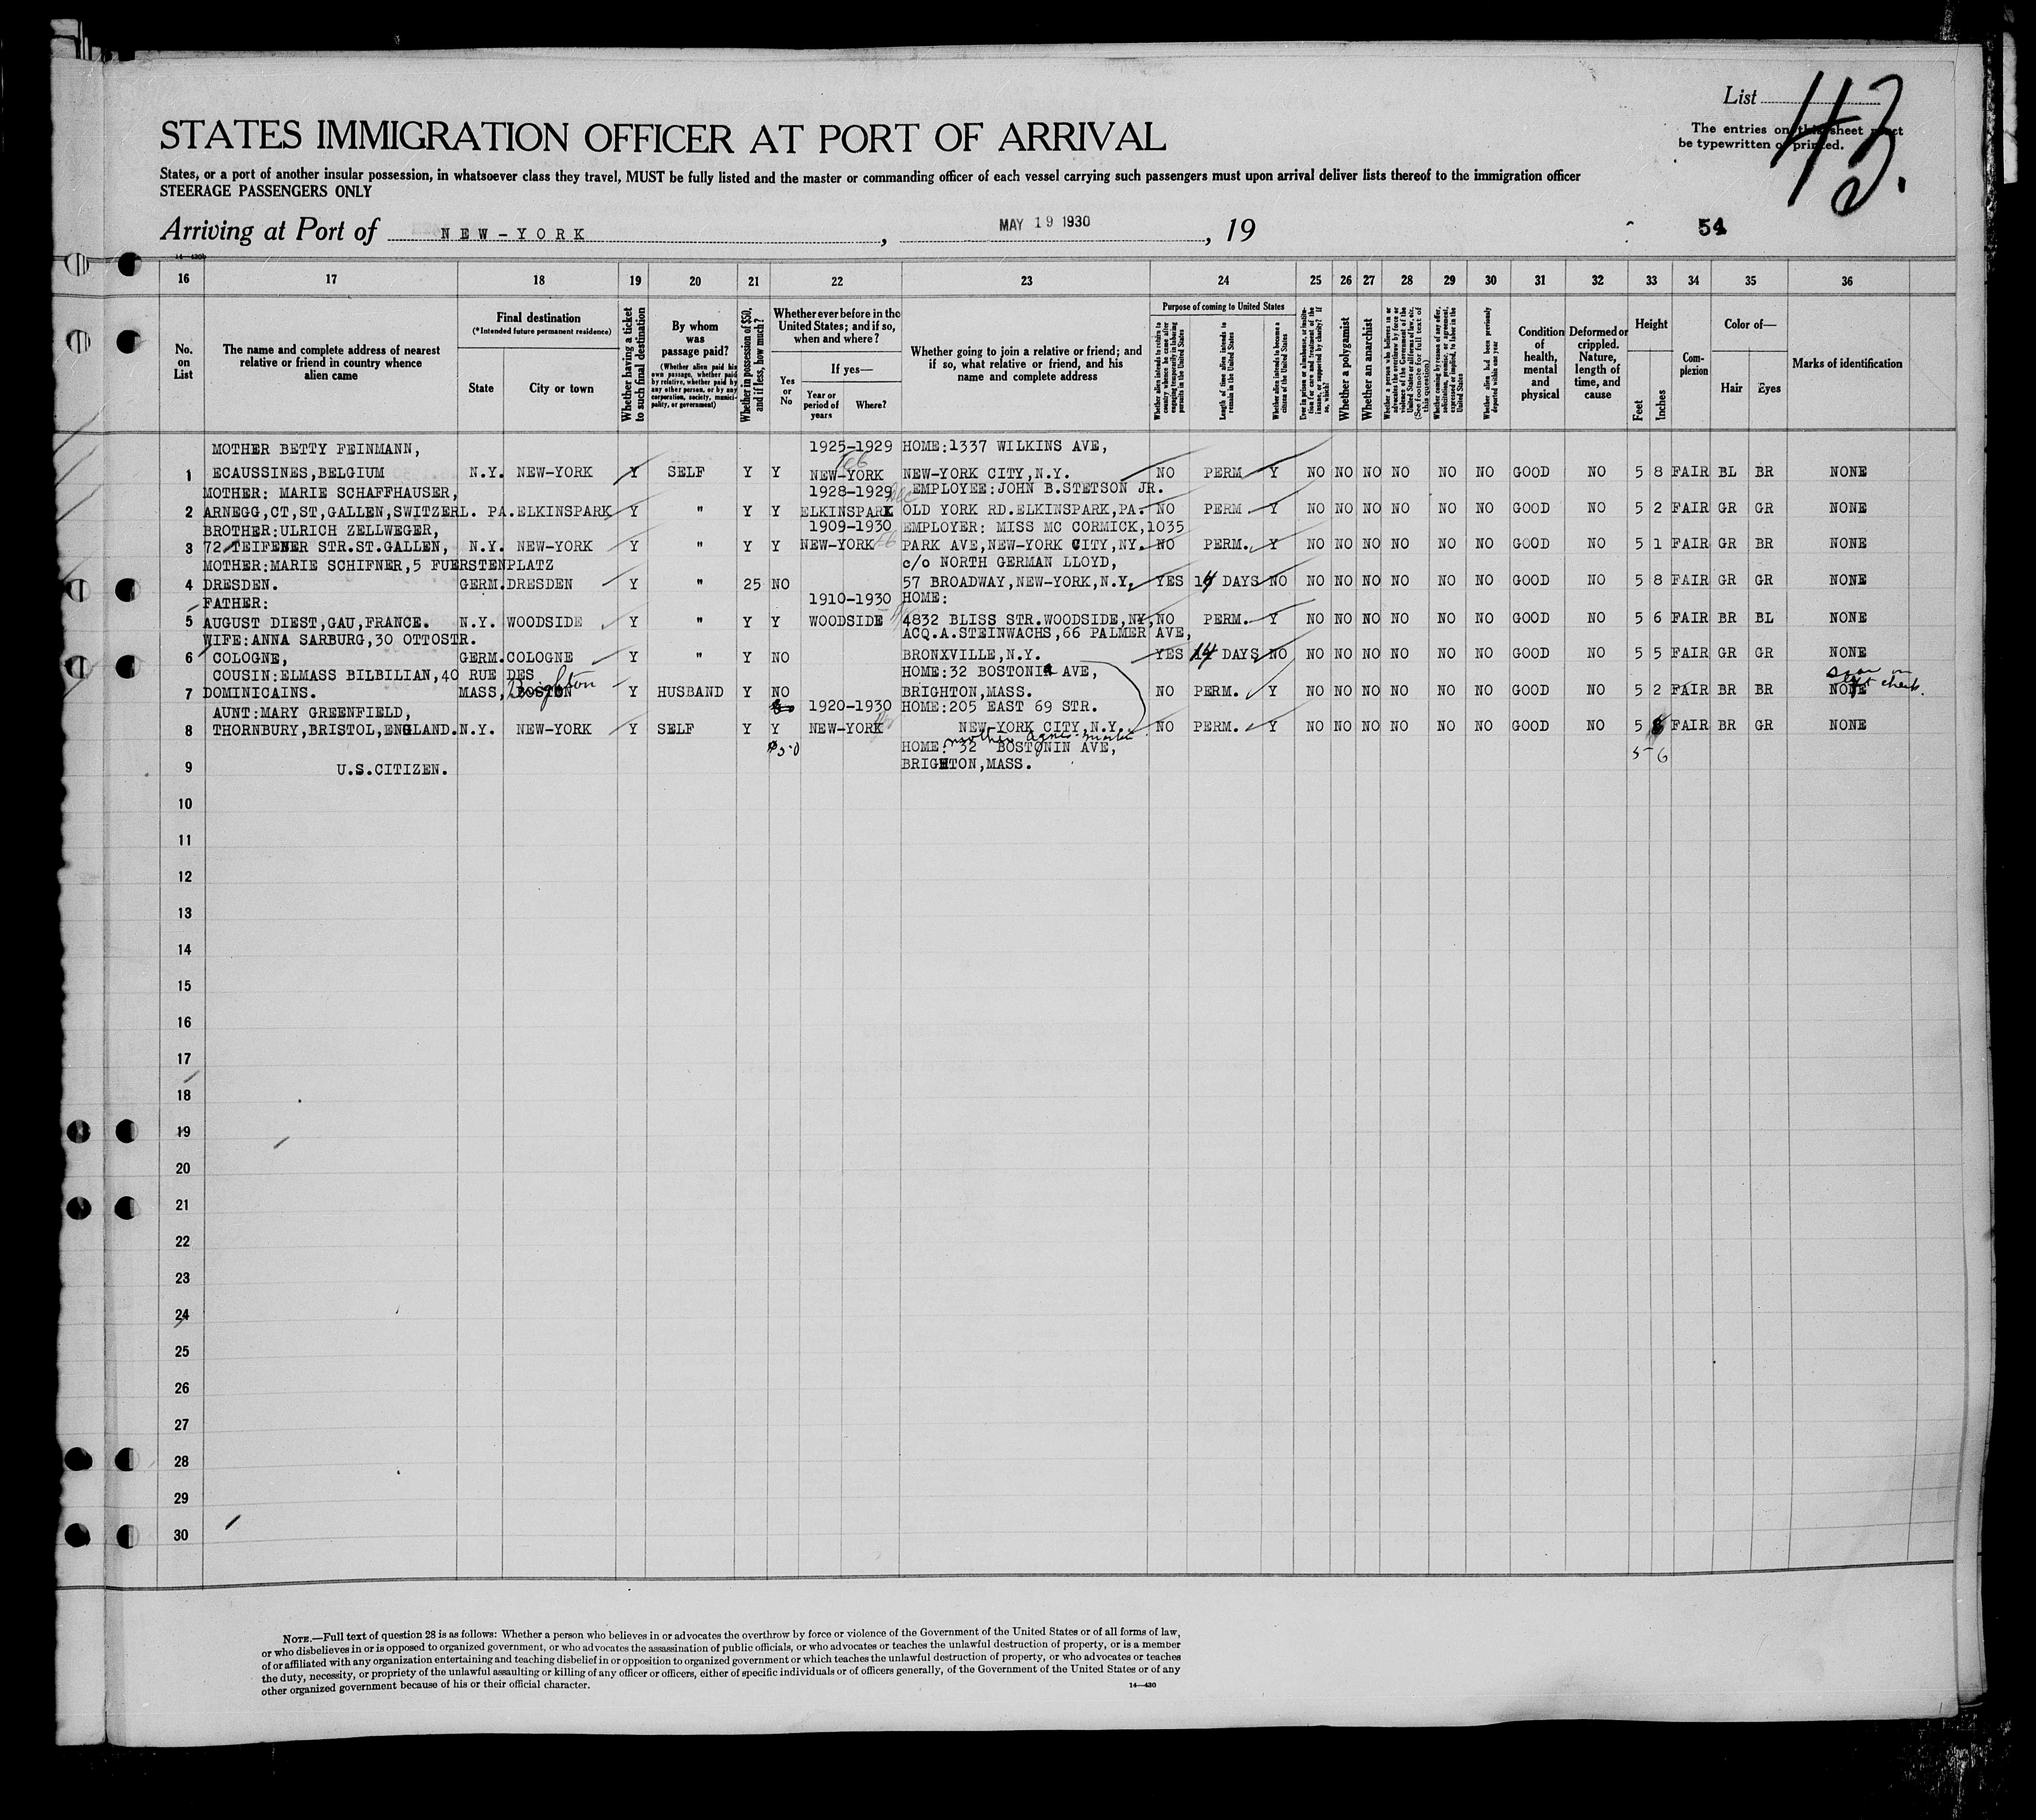 List 43.
The entries on this sheet must
be typewritten or printed.
STATES IMMIGRATION OFFICER AT PORT OF ARRIVAL
States, or a port of another insular possession, in whatsoever class they travel, MUST be fully listed and the master or commanding officer of each vessel carrying such passengers must upon arrival deliver lists thereof to the immigration officer
STEERAGE PASSENGERS ONLY
Arriving at Port of NEW-YORK, MAY 19 1930, 19
54
14-430b
16 17 18 19 20 21 22 23 24 25 26 27 28 29 30 31 32 33 34 35 36
No. on List
The name and complete address of nearest relative or friend in country whence alien came
Final destination
(*Intended future permanent residence)
State
City or town
Whether having a ticket to such final destination
By whom was passage paid?
(Whether alien paid his own passage, whether paid by relative, whether paid by any other person, or by any corporation, society, municipality, or government)
Whether in possession of $50, and if less, how much?
Whether ever before in the United States; and if so, when and where?
Yes or No
If yes—
Year or period of years
Where?
Whether going to join a relative or friend; and if so, what relative or friend, and his name and complete address
Purpose of coming to United States
Whether alien intends to return to country whence he came after engaging temporarily in laboring pursuits in the United States
Length of time alien intends to remain in the United States
Whether alien intends to become a citizen of the United States
Ever in prison or almshouse, or institution for care and treatment of the insane, or supported by charity? If so, which?
Whether a polygamist
Whether an anarchist
Whether a person who believes in or advocates the overthrow by force or violence of the Government of the United States or all forms of law, etc. (See footnote for full text of this question)
Whether coming by reason of any offer, solicitation, promise, or agreement, expressed or implied, to labor in the United States
Whether alien had been previously deported within one year
Condition of health, mental and physical
Deformed or crippled. Nature, length of time, and cause
Height
Feet
Inches
Complexion
Color of—
Hair
Eyes
Marks of identification
MOTHER BETTY FEINMANN, 1925-1929 HOME:1337 WILKINS AVE,
1 ECAUSSINES,BELGIUM N.Y. NEW-YORK Y SELF Y Y NEW-YORK NEW-YORK CITY,N.Y. NO PERM Y NO NO NO NO NO NO GOOD NO 5 8 FAIR BL BR NONE
MOTHER: MARIE SCHAFFHAUSER, 1928-1929 EMPLOYEE:JOHN B.STETSON JR.
2 ARNEGG,CT,ST,GALLEN,SWITZERL. PA.ELKINSPARK Y " Y Y ELKINSPARK OLD YORK RD.ELKINSPARK,PA. NO PERM Y NO NO NO NO NO NO GOOD NO 5 2 FAIR GR GR NONE
BROTHER:ULRICH ZELLWEGER, 1909-1930 EMPLOYER: MISS MC CORMICK,1035
3 72 TEIFENER STR.ST.GALLEN, N.Y. NEW-YORK Y " Y Y NEW-YORK PARK AVE,NEW-YORK CITY,NY. NO PERM. Y NO NO NO NO NO NO GOOD NO 5 1 FAIR GR BR NONE
MOTHER:MARIE SCHIFNER,5 FUERSTENPLATZ c/o NORTH GERMAN LLOYD,
4 DRESDEN. GERM.DRESDEN Y " 25 NO 57 BROADWAY,NEW-YORK,N.Y. YES 14 DAYS NO NO NO NO NO NO NO GOOD NO 5 8 FAIR GR GR NONE
FATHER: 1910-1930 HOME:
5 AUGUST DIEST,GAU,FRANCE. N.Y. WOODSIDE Y " Y Y WOODSIDE 4832 BLISS STR.WOODSIDE,NY, NO PERM. Y NO NO NO NO NO NO GOOD NO 5 6 FAIR BR BL NONE
WIFE:ANNA SARBURG,30 OTTOSTR. ACQ.A.STEINWACHS,66 PALMER AVE,
6 COLOGNE, GERM.COLOGNE Y " Y NO BRONXVILLE,N.Y. YES 14 DAYS NO NO NO NO NO NO NO GOOD NO 5 5 FAIR GR GR NONE
COUSIN:ELMASS BILBILIAN,40 RUE DES HOME:32 BOSTONIA AVE,
7 DOMINICAINS. MASS, BOSTON Brighton Y HUSBAND Y NO BRIGHTON,MASS. NO PERM. Y NO NO NO NO NO NO GOOD NO 5 2 FAIR BR BR NONE
AUNT:MARY GREENFIELD, 1920-1930 HOME:205 EAST 69 STR.
8 THORNBURY,BRISTOL,ENGLAND. N.Y. NEW-YORK Y SELF Y Y NEW-YORK NEW-YORK CITY,N.Y. NO PERM. Y NO NO NO NO NO NO GOOD NO 5 FAIR BR GR NONE
$50 HOME: 32 BOSTONIN AVE, 5-6
9 U.S.CITIZEN. BRIGHTON,MASS.
10
11
12
13
14
15
16
17
18
19
20
21
22
23
24
25
26
27
28
29
30
NOTE.—Full text of question 28 is as follows: Whether a person who believes in or advocates the overthrow by force or violence of the Government of the United States or of all forms of law,
or who disbelieves in or is opposed to organized government, or who advocates the assassination of public officials, or who advocates or teaches the unlawful destruction of property, or is a member
of or affiliated with any organization entertaining and teaching disbelief in or opposition to organized government or which teaches the unlawful destruction of property, or who advocates or teaches
the duty, necessity, or propriety of the unlawful assaulting or killing of any officer or officers, either of specific individuals or of officers generally, of the Government of the United States or of any
other organized government because of his or their official character.
14—430